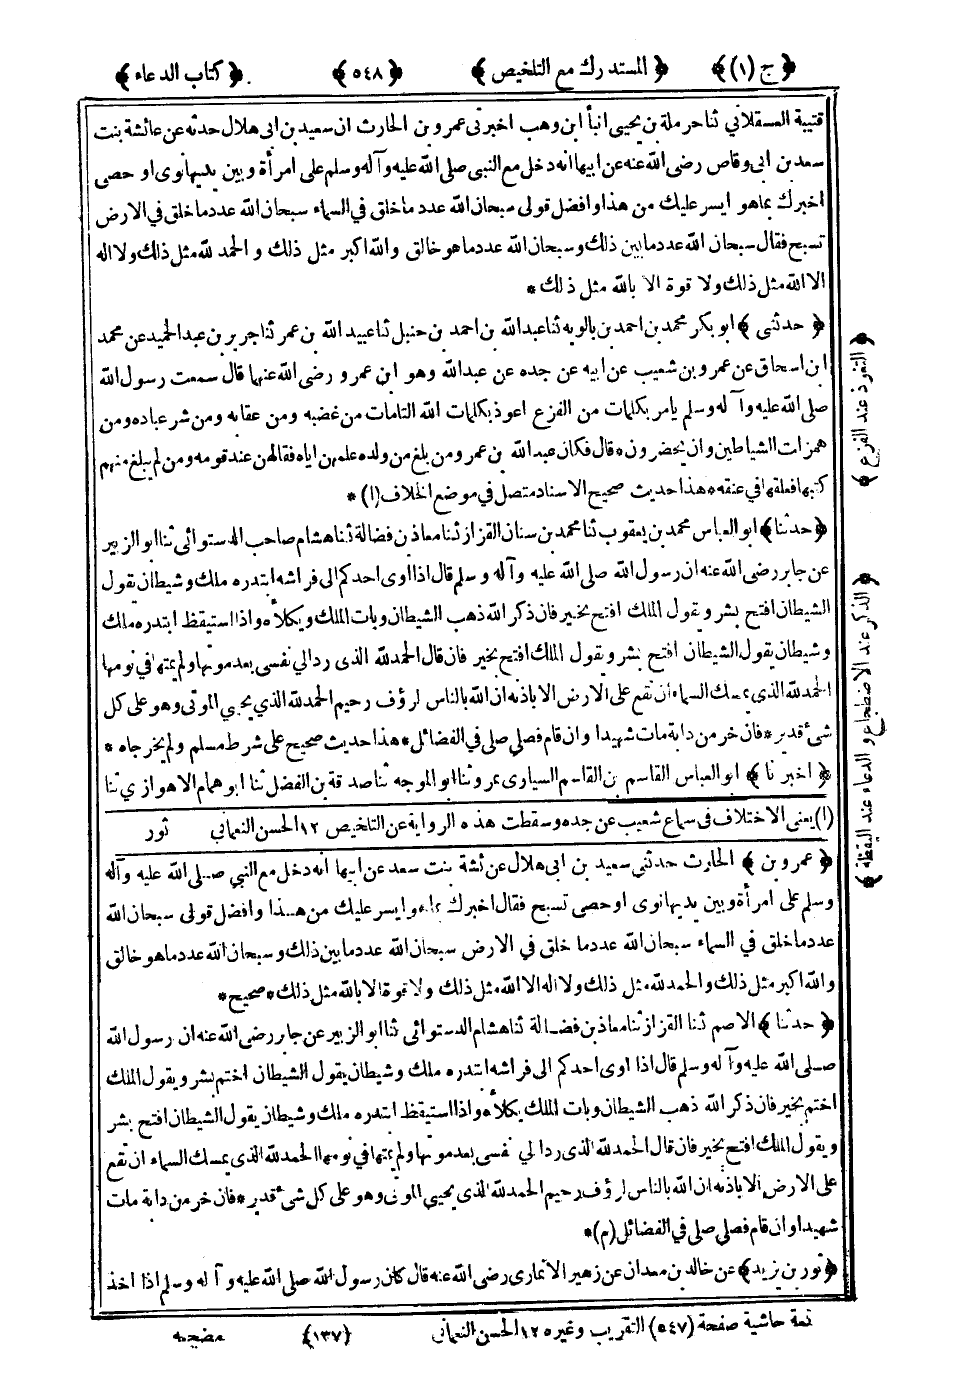 ﴿ ج (١) ﴾ ﴿ المستدرك مع التلخيص ﴾ ﴿ ٥٤٨ ﴾ ﴿ كتاب الدعاء ﴾
قتيبة العسقلاني ثنا حرملة بن يحيى انبأ ابن وهب اخبرني عمرو بن الحارث ان سعيد بن ابى هلال حدثه عن عائشة بنت
سعد بن ابى وقاص رضى الله عنه عن ابيها انه دخل مع النبى صلى الله عليه وآله وسلم على امرأة وبين يديها نوى او حصى
اخبرك بما هو ايسر عليك من هذا وافضل قولى سبحان الله عدد ما خلق في السماء سبحان الله عدد ما خلق في الارض
تسبح فقال سبحان الله عدد ما بين ذلك وسبحان الله عدد ما هو خالق والله اكبر مثل ذلك و الحمد لله مثل ذلك ولا اله
الا الله مثل ذلك ولا قوة الا بالله مثل ذلك *
﴿ حدثنى ﴾ ابو بكر محمد بن احمد بن بالويه ثنا عبدالله بن احمد بن حنبل ثنا عبيد الله بن عمر ثنا جرير بن عبد الحميد عن محمد
ابن اسحاق عن عمرو بن شعيب عن ابيه عن جده عن عبد الله وهو ابن عمرو رضى الله عنهما قال سمعت رسول الله
صلى الله عليه وآله وسلم يامر بكلمات من الفزع اعوذ بكلمات الله التامات من غضبه ومن عقابه ومن شر عباده ومن
همزات الشياطين وان يحضرون * قال فكان عبد الله بن عمرو ومن بلغ من ولده علمهن اياه فقالهن عند قومه ومن لم يبلغ منهم
كتبها فعلقها في عنقه * هذا حديث صحيح الاسناد متصل في موضع الخلاف (١) *
﴿ حدثنا ﴾ ابو العباس محمد بن يعقوب ثنا محمد بن سنان القزاز ثنا معاذ بن فضالة ثنا هشام صاحب الدستوائى ثنا ابو الزبير
عن جابر رضى الله عنه ان رسول الله صلى الله عليه وآله وسلم قال اذا اوى احدكم الى فراشه ابتدره ملك وشيطان يقول
الشيطان افتح بشر و يقول الملك افتح بخير فان ذكر الله ذهب الشيطان وبات الملك ويكلأه واذا استيقظ ابتدره ملك
وشيطان يقول الشيطان افتح بشر و يقول الملك افتح بخير فان قال الحمد لله الذى رد الي نفسى بعد موتها ولم يمتها في نومها
الحمد لله الذي يمسك السماء ان تقع على الارض الا باذنه ان الله بالناس لرؤف رحيم الحمد لله الذي يحيي الموتى وهو على كل
شئ قدير * فان خر من دابة مات شهيدا وان قام فصلي صلى في الفضائل * هذا حديث صحيح على شرط مسلم ولم يخرجاه *
﴿ اخبرنا ﴾ ابو العباس القاسم بن القاسم السيارى بمرو ثنا ابو الموجه ثنا صدقة بن الفضل ثنا ابو همام الاهوازي ثنا
(١) يعنى الاختلاف فى سماع شعيب عن جده وسقطت هذه الرواية عن التلخيص ١٢ الحسن النعمانى ثور
﴿ عمرو بن ﴾ الحارث حدثني سعيد بن ابى هلال عن عائشة بنت سعد عن ابيها انه دخل مع النبي صلى الله عليه وآله
وسلم على امرأة وبين يديها نوى او حصى تسبح فقال اخبرك بما هو ايسر عليك من هذا وافضل قولى سبحان الله
عدد ما خلق في السماء سبحان الله عدد ما خلق في الارض سبحان الله عدد ما بين ذلك وسبحان الله عدد ما هو خالق
والله اكبر مثل ذلك والحمد لله مثل ذلك ولا اله الا الله مثل ذلك ولا قوة الا بالله مثل ذلك * صحيح *
﴿ حدثنا ﴾ الاصم ثنا القزاز ثنا معاذ بن فضالة ثنا هشام الدستوائى ثنا ابو الزبير عن جابر رضى الله عنه ان رسول الله
صلى الله عليه وآله وسلم قال اذا اوى احدكم الى فراشه ابتدره ملك وشيطان يقول الشيطان اختم بشر و يقول الملك
اختم بخير فان ذكر الله ذهب الشيطان وبات الملك يكلأه واذا استيقظ ابتدره ملك وشيطان يقول الشيطان افتح بشر
و يقول الملك افتح بخير فان قال الحمد لله الذى رد الي نفسى بعد موتها ولم يمتها في نومها الحمد لله الذى يمسك السماء ان تقع
على الارض الا باذنه ان الله بالناس لرؤف رحيم الحمد لله الذى يحيي الموتى وهو على كل شئ قدير * فان خر من دابة مات
شهيدا وان قام فصلي صلى في الفضائل (م) *
﴿ ثور بن يزيد ﴾ عن خالد بن معدان عن زهير الانمارى رضى الله عنه قال كان رسول الله صلى الله عليه وآله وسلم اذا اخذ
تتمة حاشية صفحة (٥٤٧) التقريب وغيره ١٢ الحسن النعمانى (١٣٧) مضجعه
﴿ التعوذ عند الفزع ﴾
﴿ الذكر عند الاضطجاع و الدعاء عند اليقظة ﴾